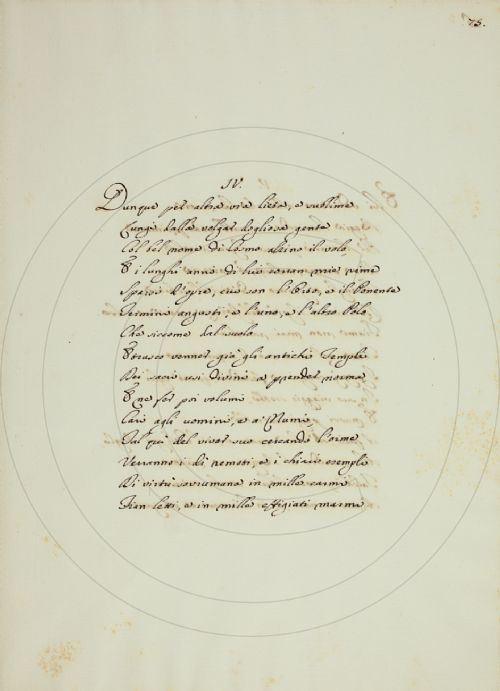 75.
IV.
Dunque per altra via lieta, e sublime
Lunge dalla volgar dogliosa gente
Col bel nome di Cosmo alzino il volo,
E i lunghi anni di lui sian mie rime
Spazii d'opre, cui son l'Orto, e il Ponente
Termini angusti, e l'uno, e l'altro Polo
Che siccome dal suolo
Etrusco venner già gli antichi Templi
Dei sacri usi divini a prender norma
E ne fer poi volumi
Cari agli uomini, e a' Numi,
Tal qui del viver suo cercando l'orme
Verranno i dì remoti, e i chiari esempli
Di virtù sovrumana in mille carmi
Fian letti, e in mille effigiati marmi